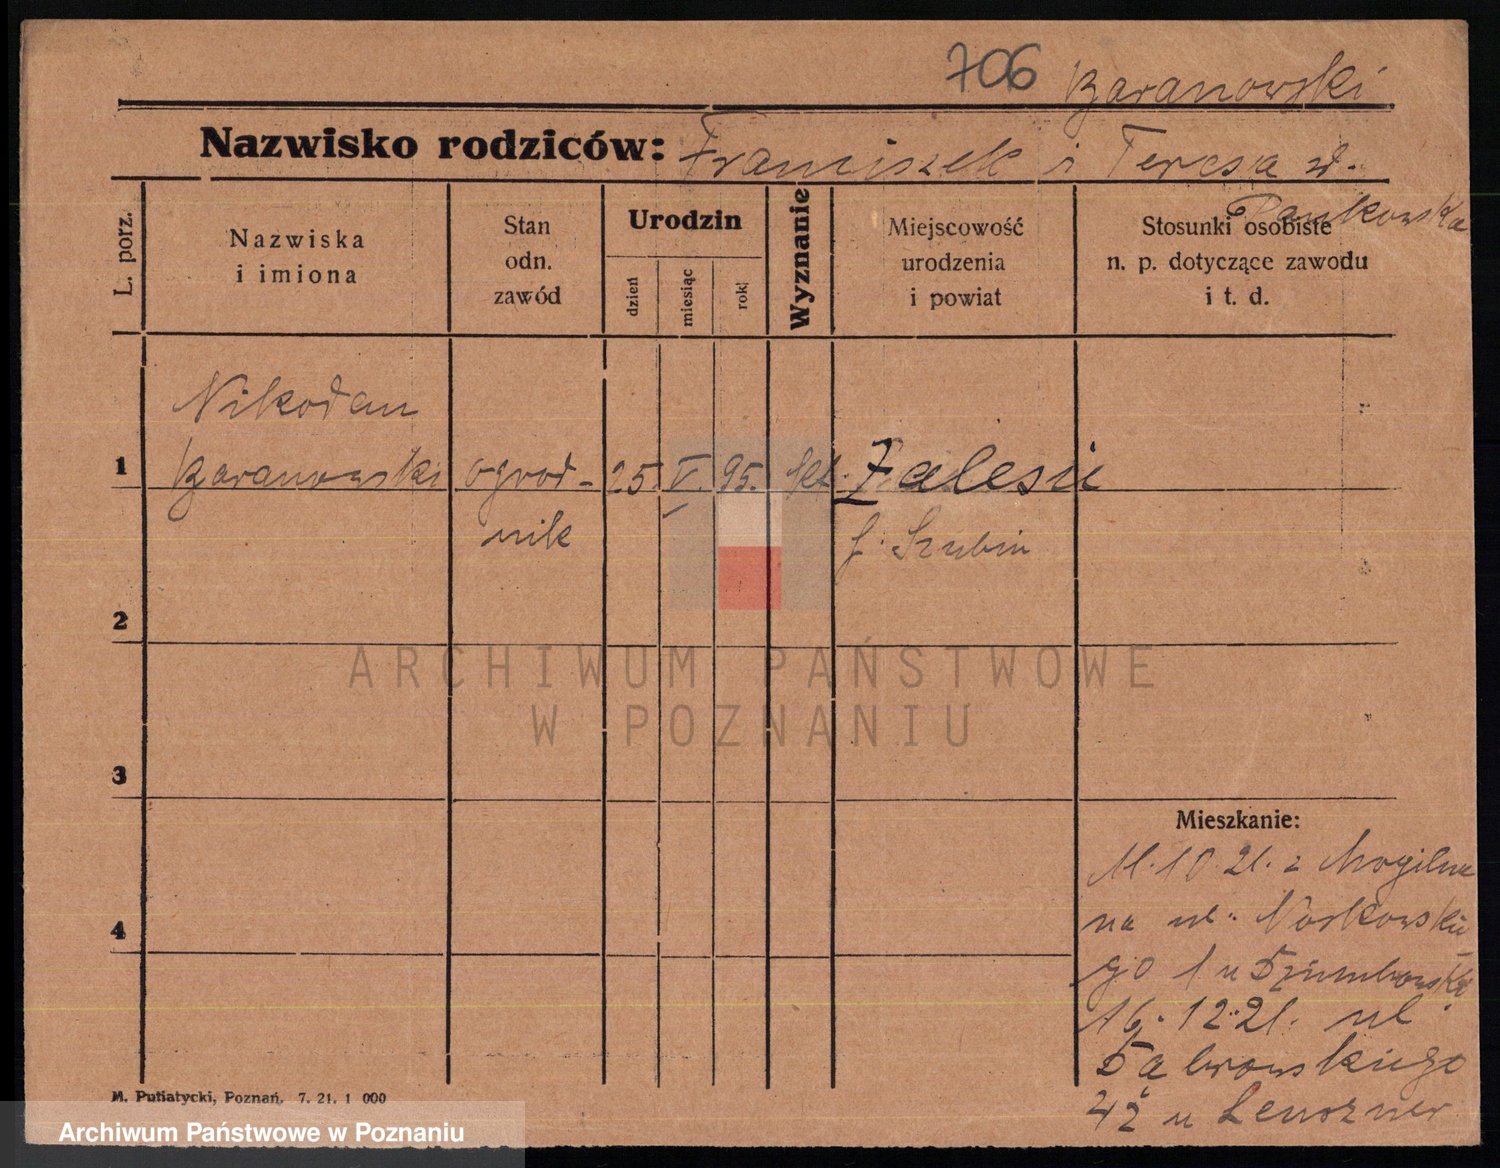 706 Baranowski
Nazwisko rodziców: Franciszek i Teresa
Pankowska
L. porz.
Nazwiska
i imiona
Stan
odn.
zawód
Urodzin
dzień
miesiąc
rok
Wyznanie
Miejscowość
urodzenia
i powiat
Stosunki osobiste
n. p. dotyczące zawodu
i t. d.
Nikodem
1 Baranowski ogrod- 25 V. 95. kt. Zalesie
nik Szubin
2
ARCHIWUM PAŃSTWOWE
W POZNANIU
3
Mieszkanie:
10.21. z Mogilna
4
na ul. Noskowskie
go 1 u
16.12.21. ul.
Dąbrowskiego
42 u
M. Putiatycki, Poznań. 7. 21. 1 000
Archiwum Państwowe w Poznaniu